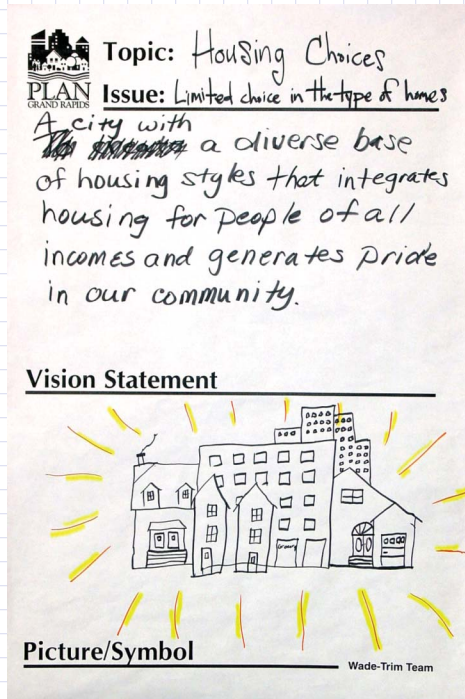 PLAN
GRAND RAPIDS
Topic: Housing Choices
Issue: Limited choice in the type of homes
A city with
a diverse base
of housing styles that integrates
housing for people of all
incomes and generates pride
in our community.
Vision Statement
Grocery
Picture/Symbol
Wade-Trim Team